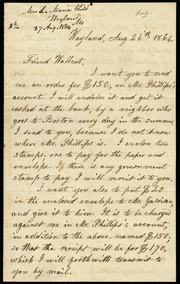 Mrs L. Maria Child
Wayland
27 Aug. 1864
Wayland, Aug. 26th, 1864.
Friend Wallcut,
I want you to send
me an order for $150, on Mr. Phillips's
account. I will endorse it and get it
cashed at the bank, by a neighbor who
goes to Boston every day in the summer.
I suppose you know where
Mr. Phillips is. I enclose two
stamps, one to pay for the paper and
envelopes. If there is any government
stamp to pay I will remit it to you.
I want you also to put $20
in the enclosed envelope to Mr. Garrison,
and give it to him. It is to be charged
against me in Mr. Phillips's account,
in addition to the above named $150;
so that the receipt will be for $170,
which I will forthwith transmit to
you by mail.